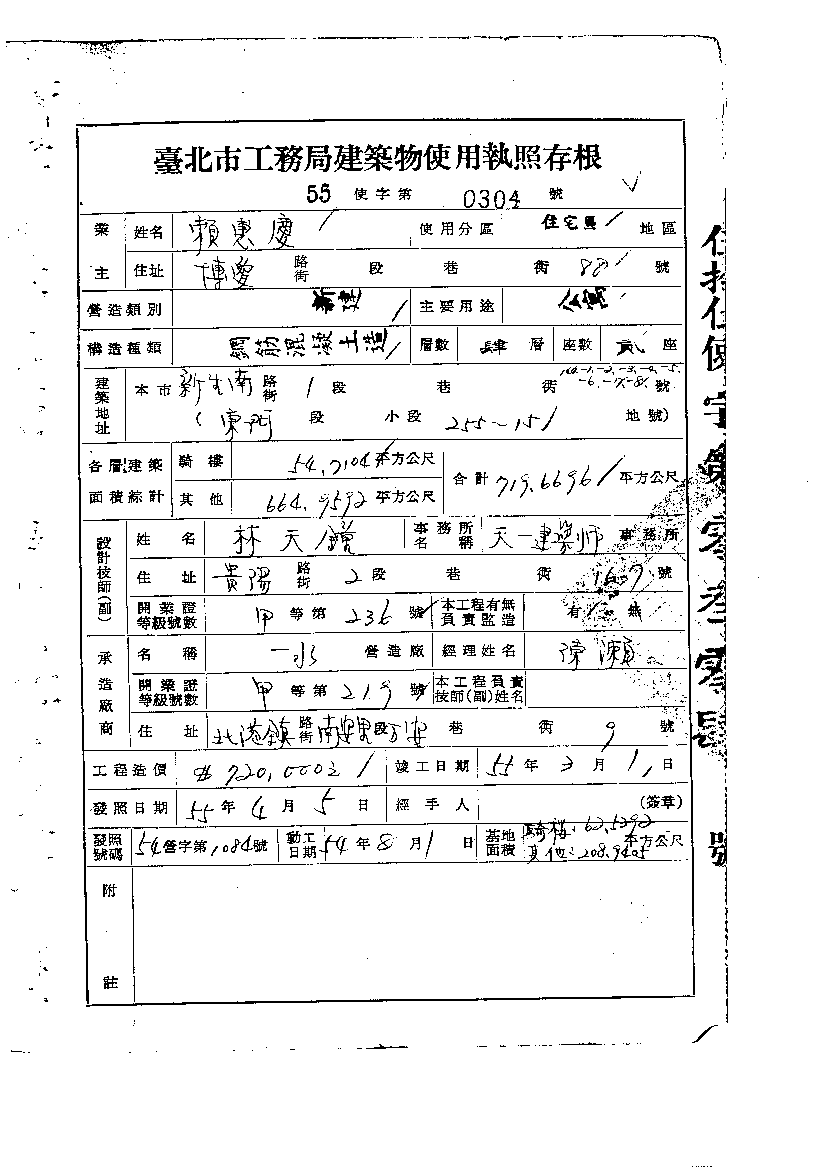 臺北市工務局建築物使用執照存根
55 使字第 0304 號
業主 姓名 賴惠慶 使用分區 住宅區 地區
住址 博愛 路街 段 巷 衖 88 號
營造類別 新建 主要用途 公寓
構造種類 鋼筋混凝土造 層數 肆 層 座數 貳 座
建築地址 本市 新生南 路街 1 段 巷 衖 號
( 段 小段 255-151 地號)
各層建築面積綜計 騎樓 54.7104 平方公尺 合計 719.6696 平方公尺
其他 664.9592 平方公尺
設計技師(副) 姓名 林天 事務所名稱 天一建築师 事務所
住址 貴陽 路街 2 段 巷 衖 167 號
開業證等級號數 甲 等第 236 號 本工程有無負責監造 有 無
承造廠商 名稱 一水 營造廠 經理姓名 陳
開業證等級號數 甲 等第 219 號 本工程負責技師(副)姓名
住址 北港鎮 路街 南安里 段 巷 衖 9 號
工程造價 720,000 竣工日期 55 年 3 月 1 日
發照日期 55 年 4 月 5 日 經手人 (簽章)
發照號碼 54 營字第 1084 號 動工日期 54 年 8 月 1 日 基地面積 騎樓:62.5292
其他:208.9405 平方公尺
附註
伍拾伍使字第零叁零肆號